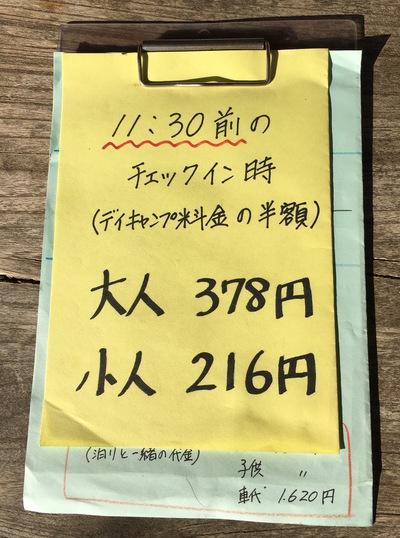 11:30前の
チェックイン時
(デイキャンプ料金の半額)
大人 378円
小人 216円
(泊りと一緒の代金)
子供 〃
車代 1.620円